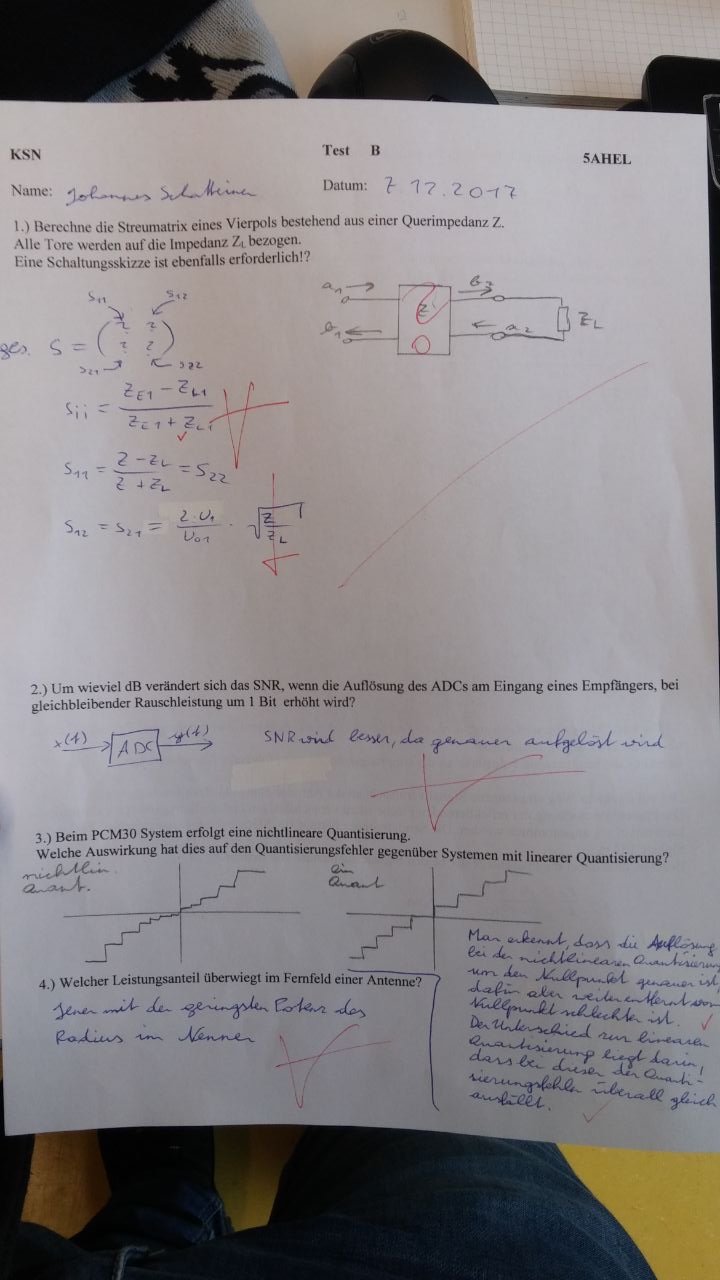 KSN Test B 5AHEL
Name: Johannes Datum: 7.12.2017
1.) Berechne die Streumatrix eines Vierpols bestehend aus einer Querimpedanz Z.
Alle Tore werden auf die Impedanz ZL bezogen.
Eine Schaltungsskizze ist ebenfalls erforderlich!?
a1 Z b2
b1 a2 ZL
S11 S12
ges. S = (? ? ? ?)
S21 S22
Sii = (ZE1 - ZL1) / (ZE1 + ZL1)
S11 = (Z - ZL) / (Z + ZL) = S22
S12 = S21 = 2·U1 / U01 · √(Z / ZL)
2.) Um wieviel dB verändert sich das SNR, wenn die Auflösung des ADCs am Eingang eines Empfängers, bei
gleichbleibender Rauschleistung um 1 Bit erhöht wird?
x(t) ADC y(t) SNR wird besser, da genauer aufgelöst wird
3.) Beim PCM30 System erfolgt eine nichtlineare Quantisierung.
Welche Auswirkung hat dies auf den Quantisierungsfehler gegenüber Systemen mit linearer Quantisierung?
nichtlin.
Quant.
lin
Quant
Man erkennt, dass die Auflösung
bei der nichtlinearen Quantisierung
um den Nullpunkt genauer ist,
dafür aber weiter entfernt vom
Nullpunkt schlechter ist.
Der Unterschied zur linearen
Quantisierung liegt darin,
dass bei dieser der Quanti-
sierungsfehler überall gleich
ausfällt.
4.) Welcher Leistungsanteil überwiegt im Fernfeld einer Antenne?
Jener mit der geringsten Potenz des
Radius im Nenner